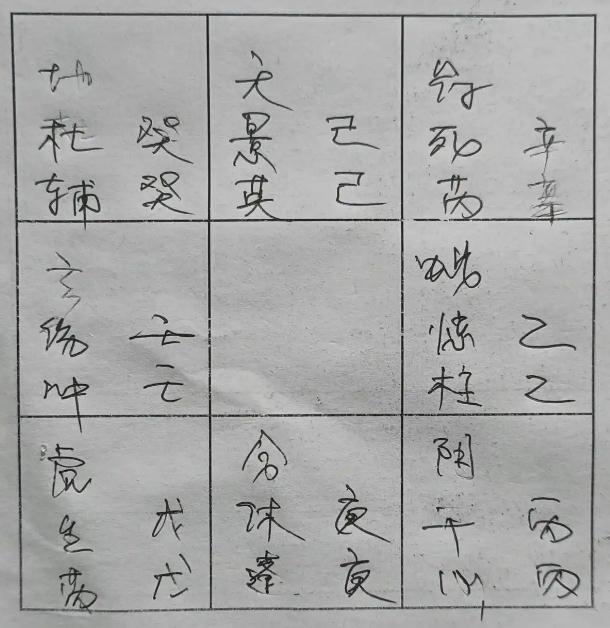 地
杜 癸
辅 癸
天
景 己
英 己
符
死 辛
芮 辛
玄
伤 壬
冲 壬
蛇
惊 乙
柱 乙
虎
生 戊
戊
合
休 庚
蓬 庚
阴
开 丙
心 丙